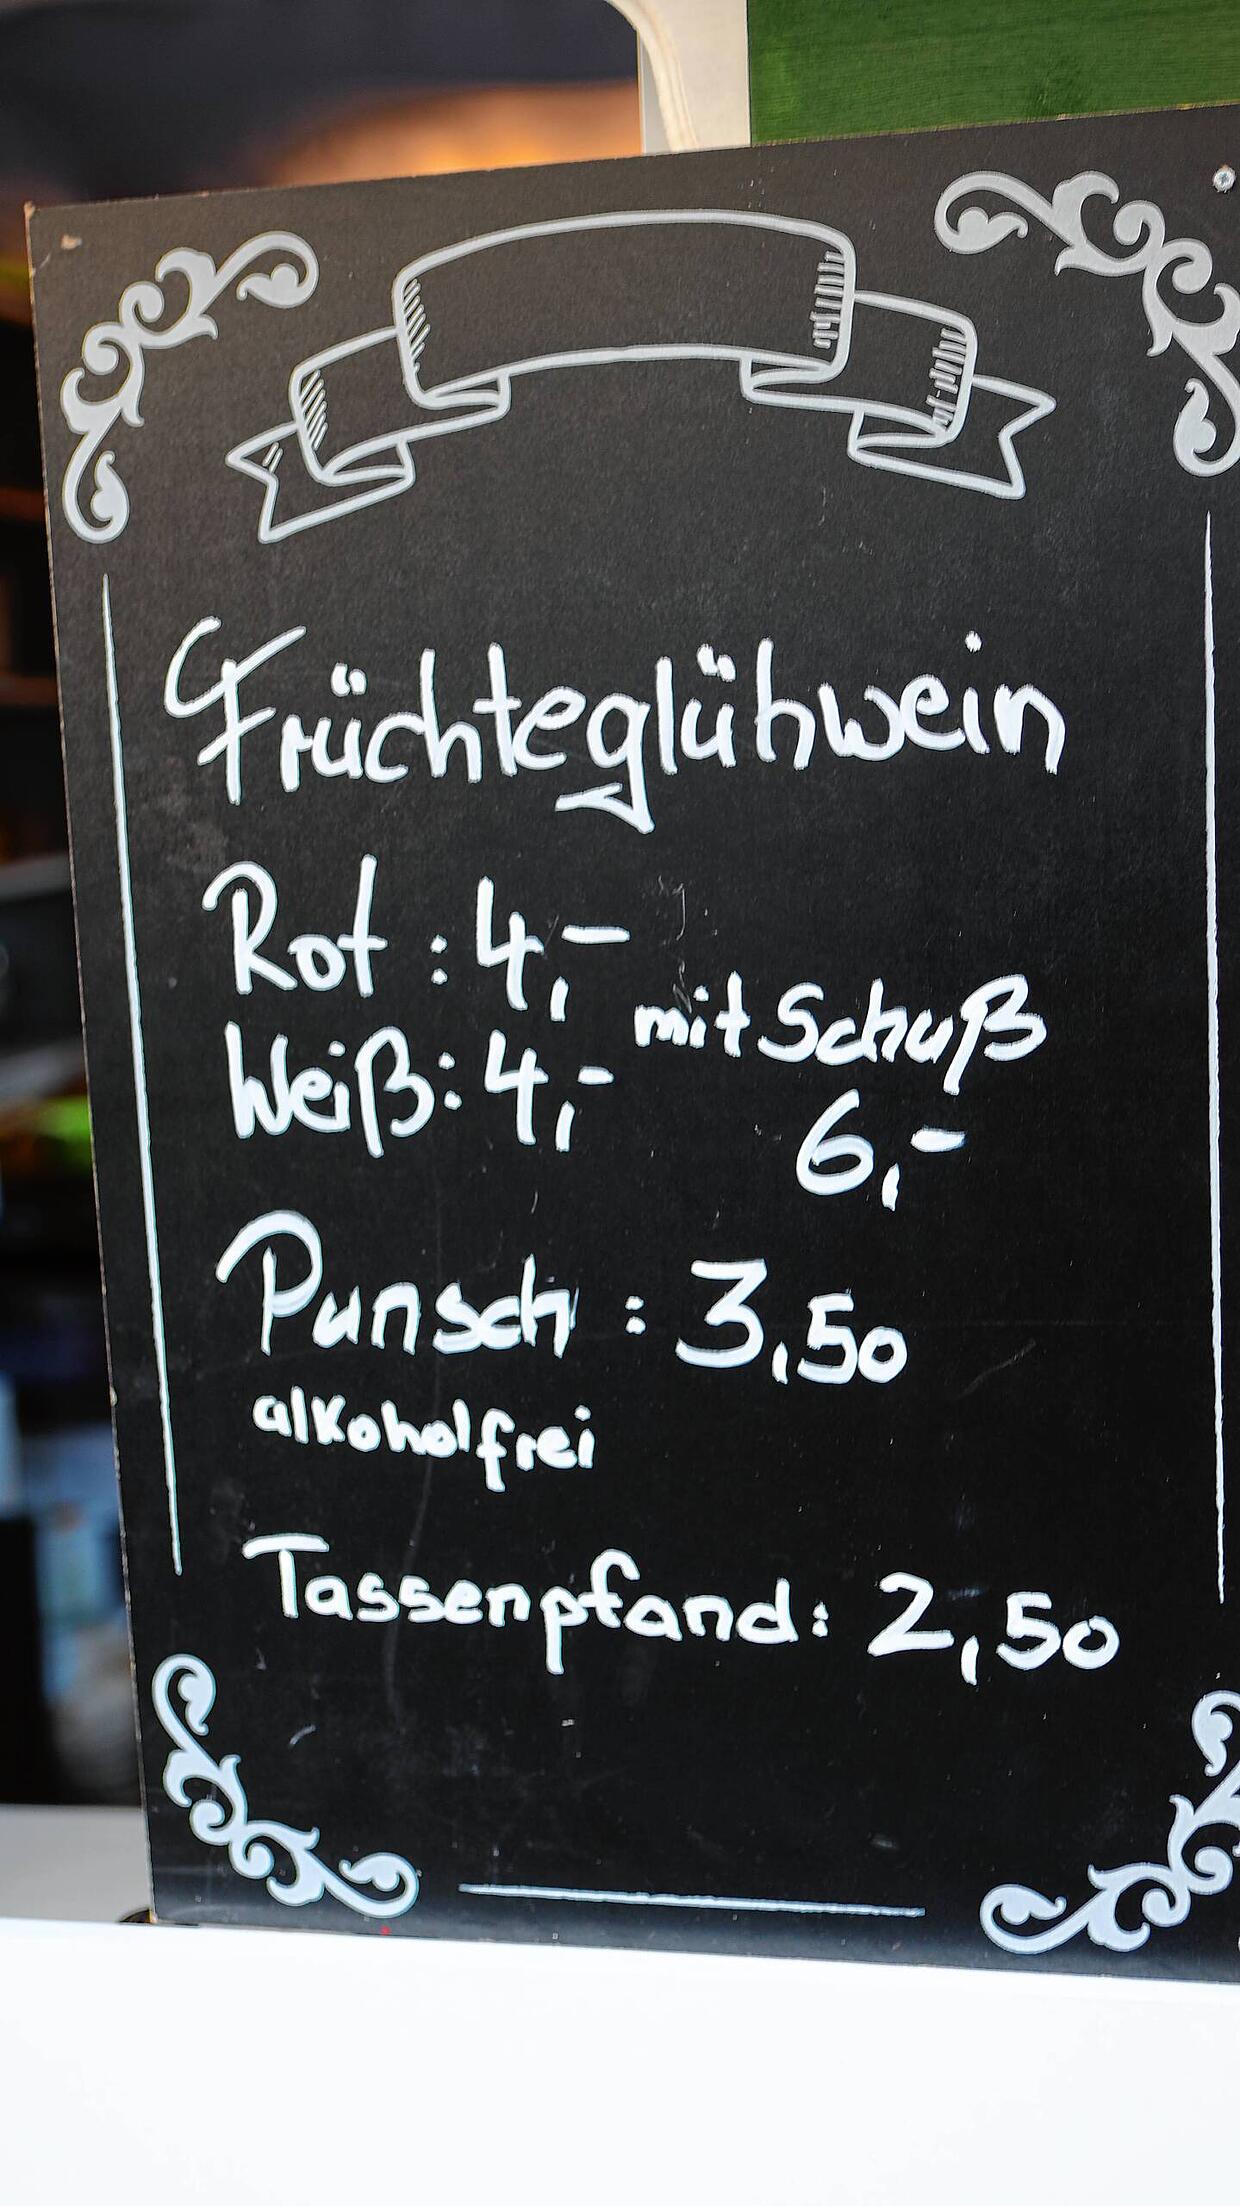 Früchteglühwein
Rot : 4,-
Weiß: 4,-
mit Schuß
6,-
Punsch : 3,50
alkoholfrei
Tassenpfand: 2,50